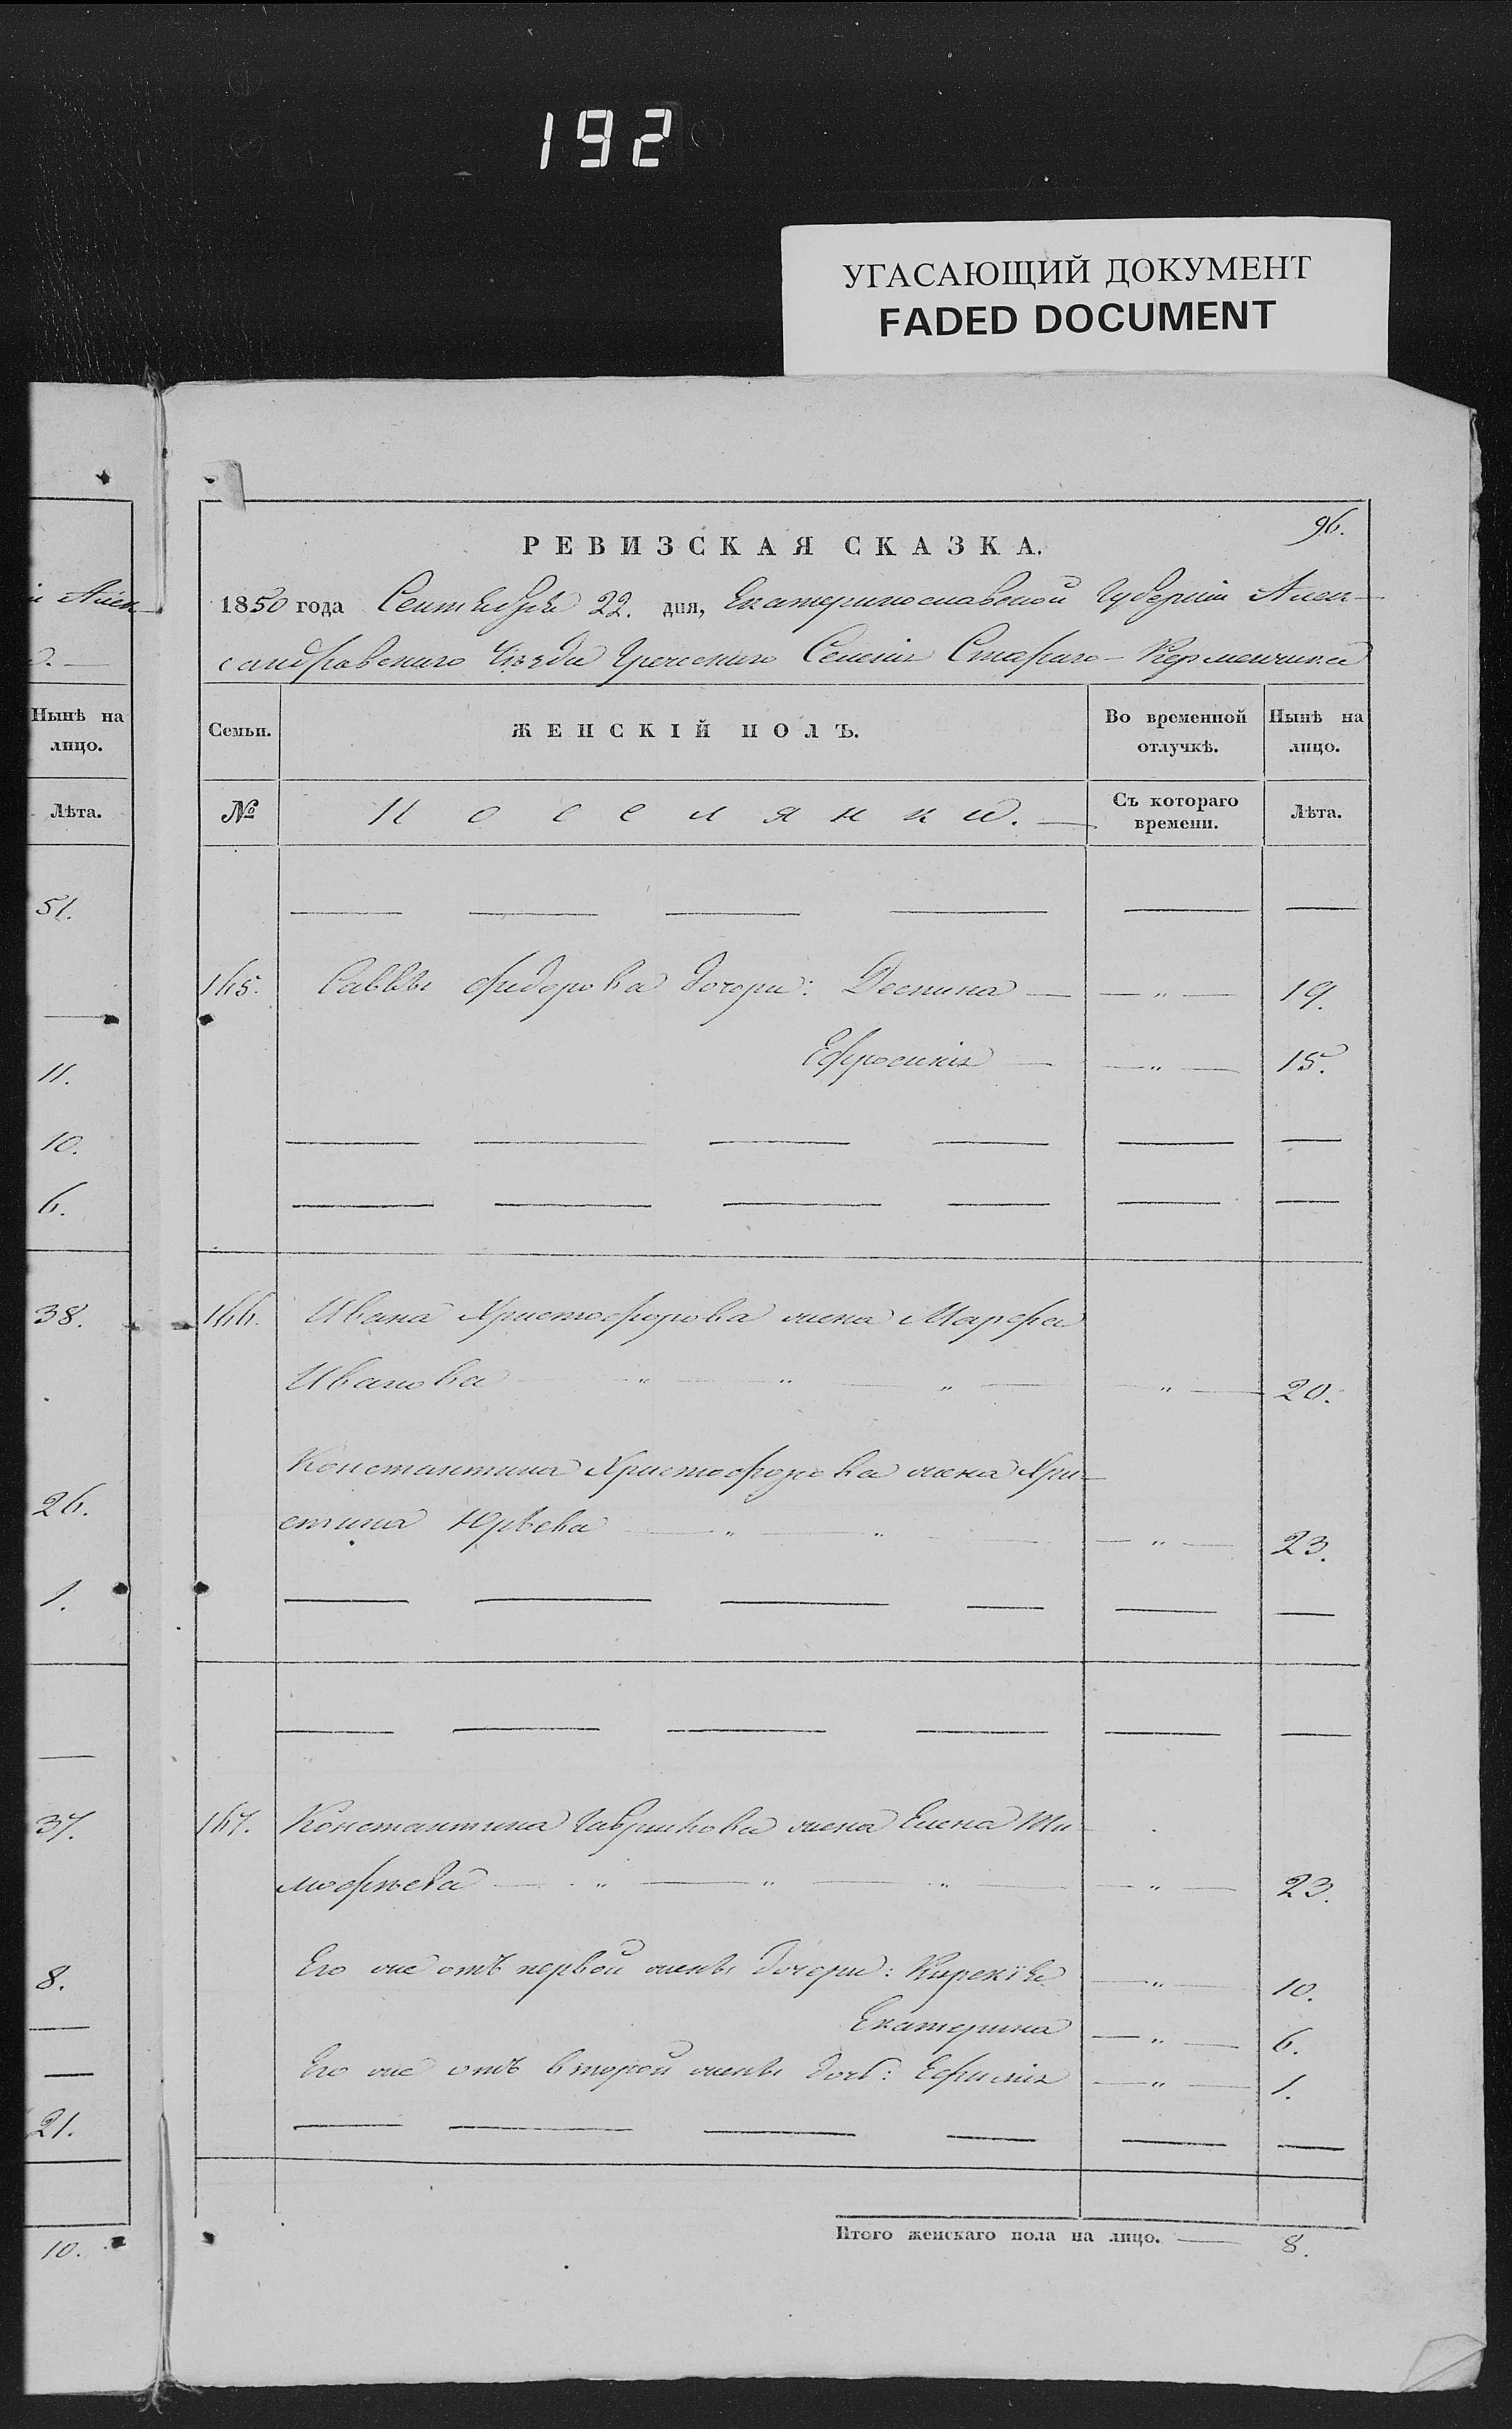 192
УГАСАЮЩИЙ ДОКУМЕНТ
FADED DOCUMENT
96.
РЕВИЗСКАЯ СКАЗКА.
1850 года Сентября 22. дня, Екатеринославской Губерніи Алек-
сандровскаго Уѣзда Греческаго Селенія Стараго-Керменчика
Семьи. ЖЕНСКІЙ ПОЛЪ. Во временной отлучкѣ. Нынѣ на лицо.
№ Поселянки. Съ котораго времени. Лѣта.
165. Саввы Фидорова дочери: Деспина — " — 19.
Ефросинія — " — 15.
166. Ивана Христофорова жена Марфа
Иванова — " — " — " — " — 20.
Константина Христофорова жена Хри-
стина Юрьева — " — " — " — 23.
167. Константина Гаврилова жена Елена Ти-
мофѣева — " — " — " — " — 23.
Его же отъ первой жены дочери: Кирекіа — " — 10.
Екатерина — " — 6.
Его же отъ второй жены дочь: Ефимія — " — 1.
Итого женскаго пола на лицо. — 8.
Алек-
Нынѣ на
лицо.
Лѣта.
51.
11.
10.
6.
38.
26.
1.
37.
8.
21.
10.